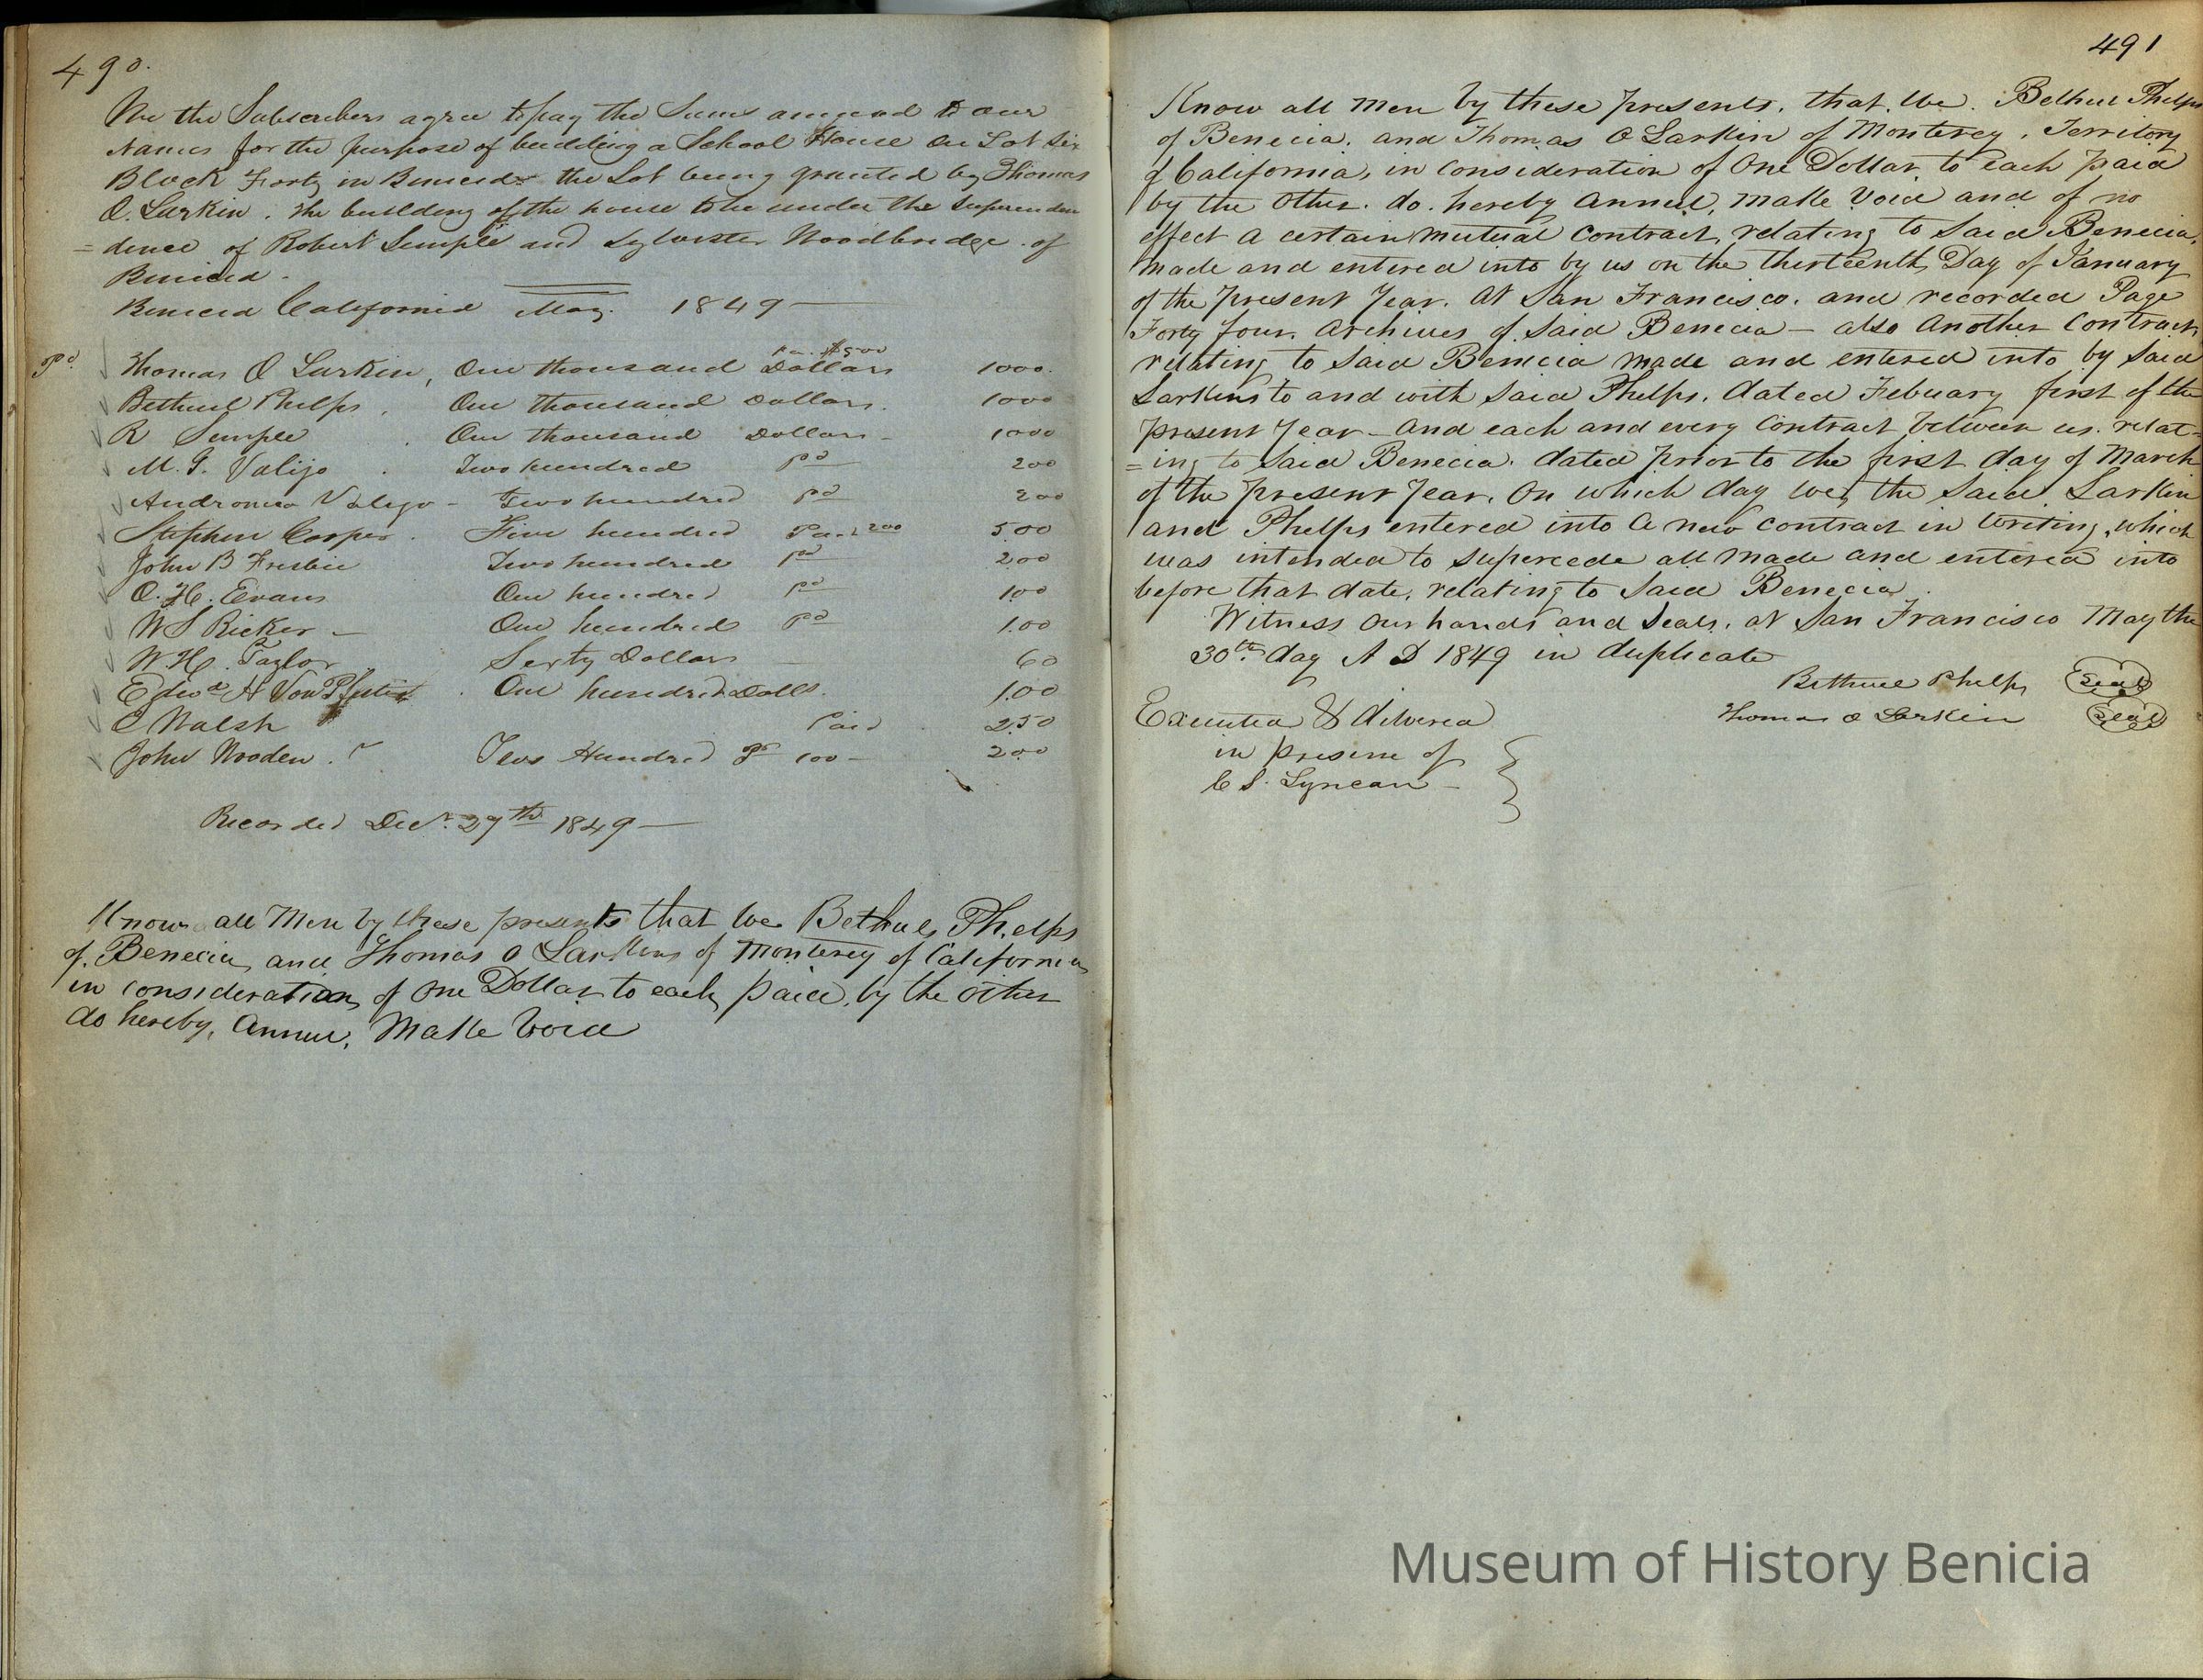 490.
We the Subscribers agree to pay the Sums annexed to our
Names for the purpose of building a School House on Lot Six
Block Forty in Benicia the Lot being granted by Thomas
O. Larkin. The building of the house to be under the Superinden
= dence of Robert Semple and Sylvester Woodbridge of
Benicia.
Benicia California May. 1849
Pd. Thomas O Larkin, One thousand Dollars 1000.
$500
Bethuel Phelps, One thousand Dollars. 1000
R Semple One thousand Dollars 1000
M. G. Valijo Two hundred pd 200
Andronico Valejo Two hundred pd 200
Stephen Cooper Five hundred Paid 200 500
John B Frisbie Two hundred pd 200
O. H. Evans One hundred pd 100
W S Ricker One hundred pd 100
W. H. Taylor Sixty Dollars 60
Edwd H Von Pfister One hundred Dolls. 100
C Walsh Paid 250
John Wooden Two Hundred Pd 100 200
Recorded Decr. 27th 1849
Know all Men by these presents that We Bethuel Phelps
of Benecia and Thomas O Larkins of Monterey of California
in consideration of One Dollar to each paid, by the other
do hereby, Annul, Make Void
491
Know all Men by these presents, that, We. Bethuel Phelps
of Benecia, and Thomas O Larkin of Monterey, Territory
of California, in consideration of One Dollar to each paid
by the Other. do. hereby Annul, make Void and of no
effect a certain mutual contract, relating to Said Benecia,
made and entered into by us on the thirteenth Day of January
of the present Year. At San Francisco. and recorded Page
Forty four. Archives of Said Benecia - also Another Contract
relating to Said Benecia made and entered into by Said
Larkins to and with Said Phelps. dated Febuary first of the
present Year - And each and every Contract between us. relat=
=ing to Said Benecia. dated prior to the first day of March
of the present Year. On which day we, the Said Larkin
and Phelps entered into a new contract in Writing, which
was intended to Supercede all made and entered into
before that date, relating to Said Benecia.
Witness Our hands and Seals, at San Francisco May the
30th. day A D 1849 in duplicate
Bethuel Phelps Seal
Thomas O Larkin Seal
Executed & dilivered
in presence of
C S. Lyncan
Museum of History Benicia